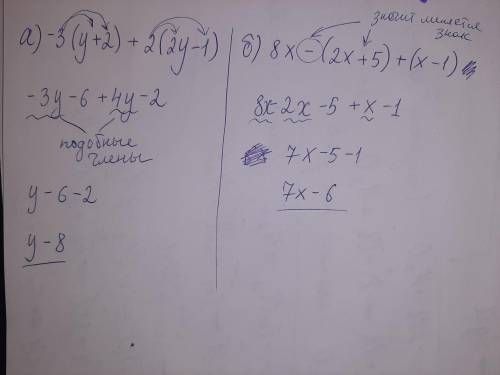 а) -3(y+2) + 2(2y-1)
-3y-6+4y-2
подобные
члены
y-6-2
y-8
значит меняется
знак
б) 8x-(2x+5)+(x-1)
8x-2x-5+x-1
7x-5-1
7x-6